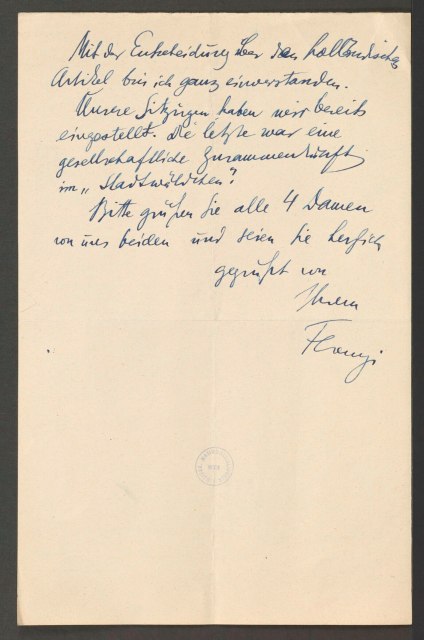 Mit der Entscheidung über den holländischen
Artikel bin ich ganz einverstanden.
Unsere Sitzungen haben wir bereits
eingestellt. Die letzte war eine
gesellschaftliche Zusammenkunft
im „Stadtwäldchen".
Bitte grüßen Sie alle 4 Damen
von uns beiden und seien Sie herzlich
gegrüßt von
Ihrem
Ferenczi